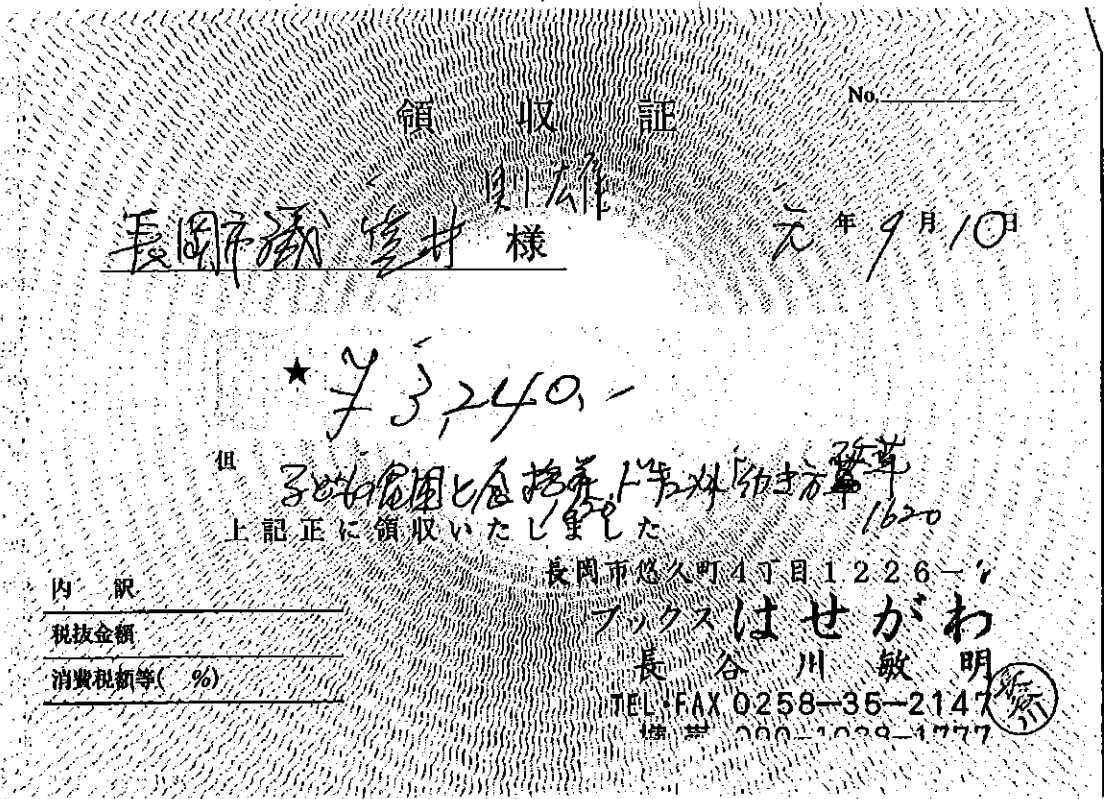 領 収 証
No.
則雄
長岡市議 笠井 様
元 年 9 月 10 日
★ ¥3,240,-
但 子どもの貧困と 働き方 革
1620 1620
上記正に領収いたしました
内 訳
税抜金額
消費税額等( %)
長岡市悠久町4丁目1226-
ブックス はせがわ
長 谷 川 敏 明
TEL・FAX 0258-35-2147
携 帯 090-1039-1777